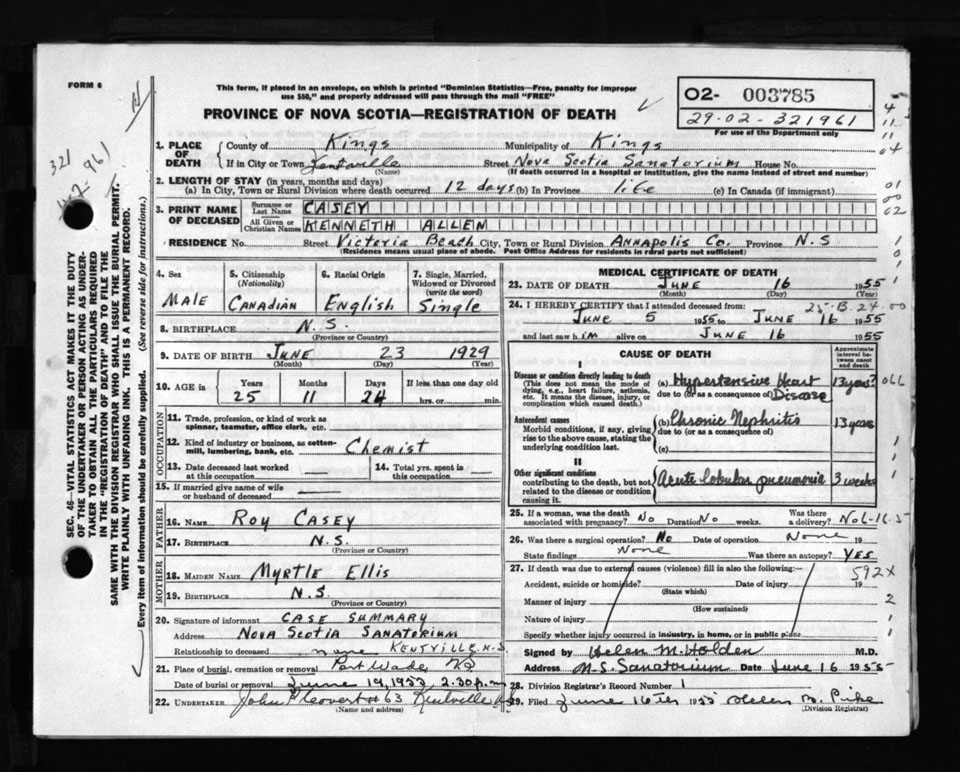 FORM 6
This form, if placed in an envelope, on which is printed "Dominion Statistics—Free, penalty for improper
use $50," and properly addressed will pass through the mail "FREE"
PROVINCE OF NOVA SCOTIA—REGISTRATION OF DEATH
02- 003785
29-02-321961
For use of the Department only
321
961
SEC. 46—VITAL STATISTICS ACT MAKES IT THE DUTY
OF THE UNDERTAKER OR PERSON ACTING AS UNDER-
TAKER TO OBTAIN ALL THE PARTICULARS REQUIRED
IN THE "REGISTRATION OF DEATH" AND TO FILE THE
SAME WITH THE DIVISION REGISTRAR WHO SHALL ISSUE THE BURIAL PERMIT.
WRITE PLAINLY WITH UNFADING INK. THIS IS A PERMANENT RECORD.
Every item of information should be carefully supplied. (See reverse side for instructions.)
1. PLACE OF DEATH
County of Kings Municipality of Kings
If in City or Town Kentville Street Nova Scotia Sanatorium House No.
(Name) (If death occurred in a hospital or institution, give the name instead of street and number)
2. LENGTH OF STAY (in years, months and days)
(a) In City, Town or Rural Division where death occurred 12 days (b) In Province life (c) In Canada (if immigrant)
3. PRINT NAME OF DECEASED
Surname or Last Name CASEY
All Given or Christian Names KENNETH ALLEN
RESIDENCE No. Street Victoria Beach City, Town or Rural Division ANNAPOLIS Co. Province N.S
(Residence means usual place of abode. Post Office Address for residents in rural parts not sufficient)
4. Sex
MALE
5. Citizenship
(Nationality)
CANADIAN
6. Racial Origin
English
7. Single, Married,
Widowed or Divorced
(write the word)
Single
8. BIRTHPLACE N.S.
(Province or Country)
9. DATE OF BIRTH JUNE 23 1929
(Month) (Day) (Year)
10. AGE IN
Years Months Days If less than one day old
25 11 24 hrs. or min.
OCCUPATION
11. Trade, profession, or kind of work as
spinner, teamster, office clerk, etc.
12. Kind of industry or business, as cotton-
mill, lumbering, bank, etc. Chemist
13. Date deceased last worked
at this occupation
14. Total yrs. spent in
this occupation
15. If married give name of wife
or husband of deceased
FATHER
16. NAME ROY CASEY
17. BIRTHPLACE N.S.
(Province or Country)
MOTHER
18. MAIDEN NAME MYRTLE ELLIS
19. BIRTHPLACE N.S.
(Province or Country)
20. Signature of informant CASE SUMMARY
Address NOVA SCOTIA SANATORIUM
Relationship to deceased none KENTVILLE N.S.
21. Place of burial, cremation or removal Port Wade
Date of burial or removal June 19, 1955 2.30 p.m
22. UNDERTAKER John # 63 Kentville
(Name and address)
MEDICAL CERTIFICATE OF DEATH
23. DATE OF DEATH JUNE 16 1955
(Month) (Day) (Year)
24. I HEREBY CERTIFY that I attended deceased from
JUNE 5 1955 to JUNE 16 1955
and last saw him alive on JUNE 16 1955
CAUSE OF DEATH
Approximate
interval be-
tween onset
and death
I
Disease or condition directly leading to death
(This does not mean the mode of
dying, e.g., heart failure, asthenia,
etc. It means the disease, injury, or
complication which caused death.)
(a) Hypertensive Heart Disease 13 years?
due to (or as a consequence of)
Antecedent causes
Morbid conditions, if any, giving
rise to the above cause, stating the
underlying condition last.
(b) Chronic Nephritis 13 years
due to (or as a consequence of)
(c)
II
Other significant conditions
contributing to the death, but not
related to the disease or condition
causing it.
Acute lobular pneumonia 3 weeks
25. If a woman, was the death
associated with pregnancy? No Duration No weeks. Was there
a delivery? No
26. Was there a surgical operation? No Date of operation None 19
State findings None Was there an autopsy? YES
27. If death was due to external causes (violence) fill in also the following:— 592X
Accident, suicide or homicide? Date of injury 19
(State which)
Manner of injury
(How sustained)
Nature of injury
Specify whether injury occurred in industry, in home, or in public place
Signed by Helen M. Holden M.D.
Address N.S. Sanatorium Date June 16 1955
28. Division Registrar's Record Number 1
29. Filed June 16th 1955
(Division Registrar)